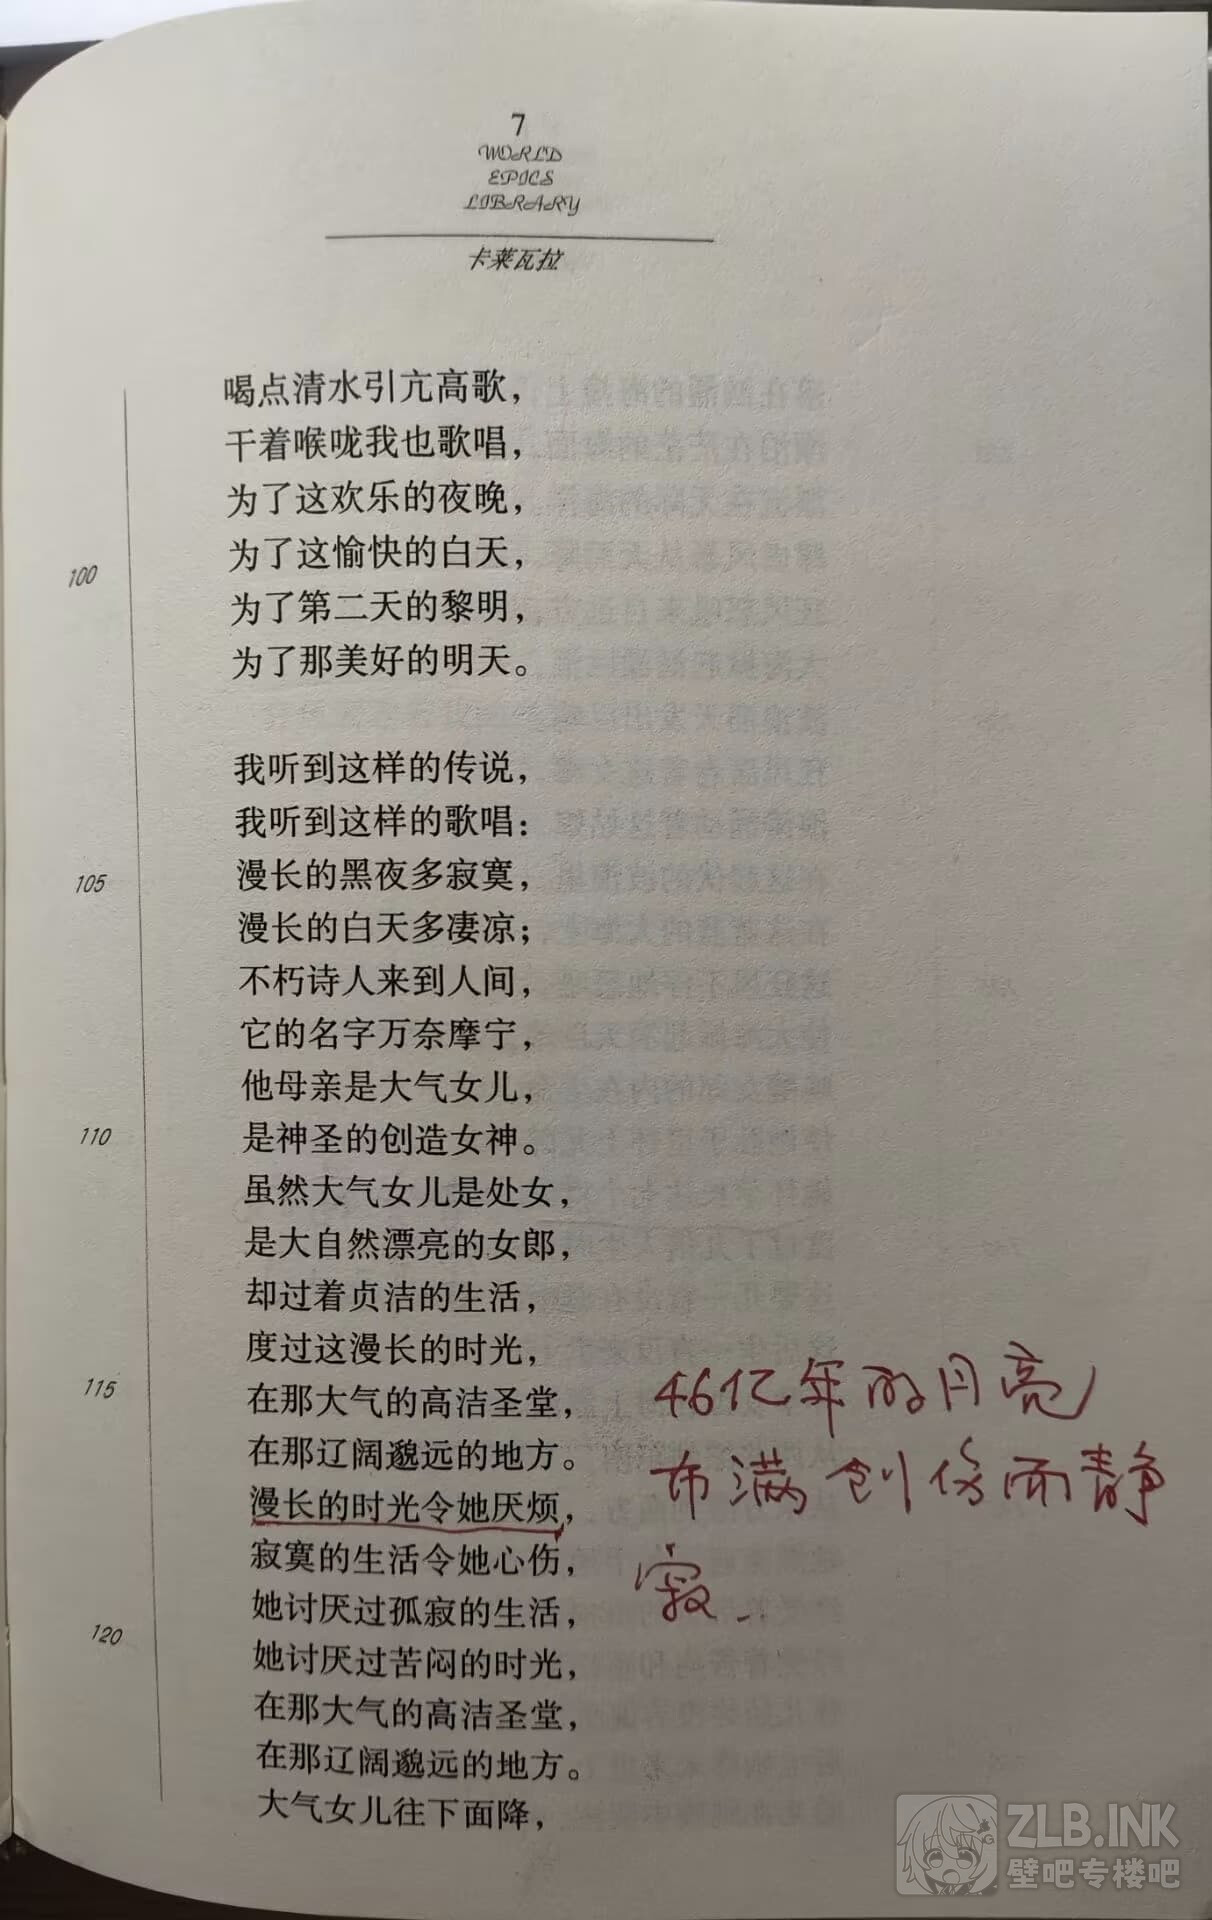 7
WORLD
EPICS
LIBRARY
卡莱瓦拉
喝点清水引亢高歌，
干着喉咙我也歌唱，
为了这欢乐的夜晚，
100 为了这愉快的白天，
为了第二天的黎明，
为了那美好的明天。
我听到这样的传说，
我听到这样的歌唱：
105 漫长的黑夜多寂寞，
漫长的白天多凄凉；
不朽诗人来到人间，
它的名字万奈摩宁，
他母亲是大气女儿，
110 是神圣的创造女神。
虽然大气女儿是处女，
是大自然漂亮的女郎，
却过着贞洁的生活，
度过这漫长的时光，
115 在那大气的高洁圣堂，
在那辽阔邈远的地方。
漫长的时光令她厌烦，
寂寞的生活令她心伤，
她讨厌过孤寂的生活，
120 她讨厌过苦闷的时光，
在那大气的高洁圣堂，
在那辽阔邈远的地方。
大气女儿往下面降，
46亿年的月亮
布满创伤而静
寂..
ZLB.INK
壁吧专楼吧